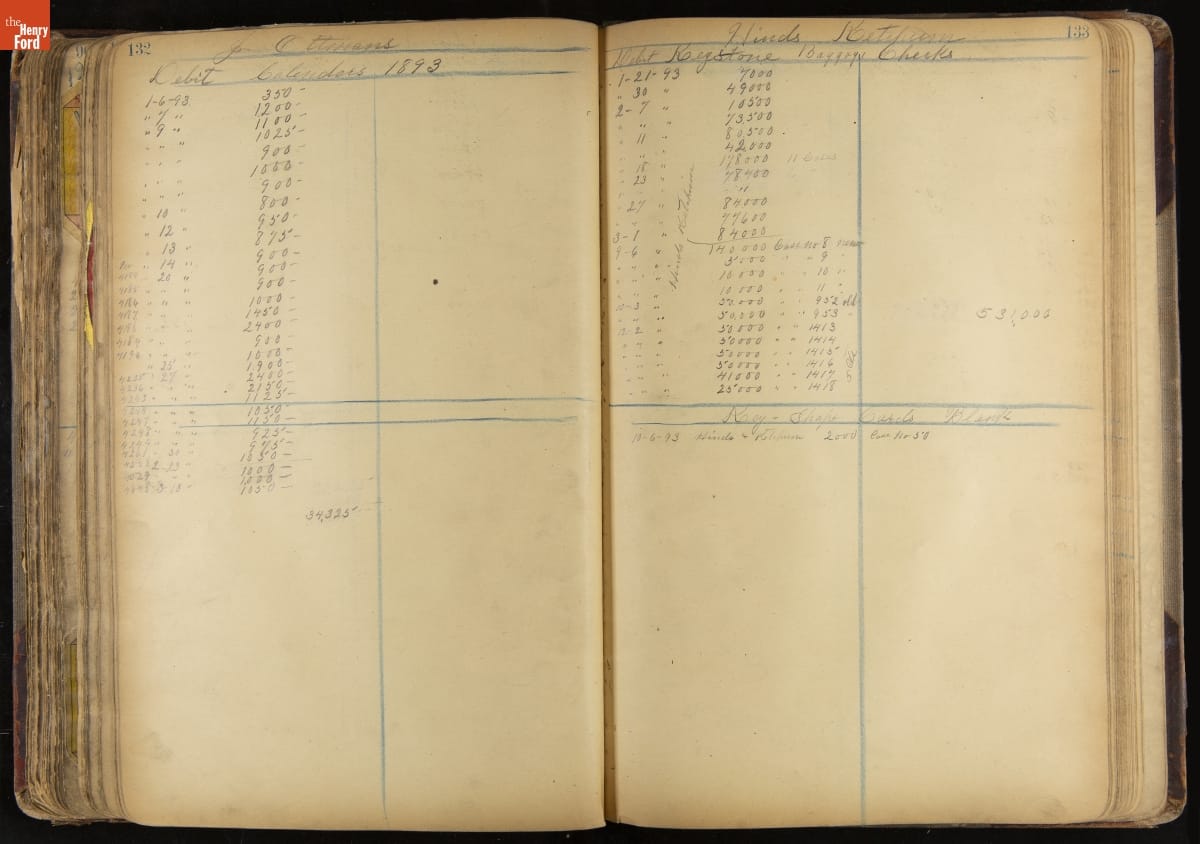 the
Henry
Ford
132
J Ottmans
Debit Calenders 1893
1-6-93 350 -
" 7 " 1200 -
" 9 " 1100 -
" " " 1025 -
" " " 900 -
" " " 1000 -
" " " 900 -
" " " 800 -
" 10 " 950 -
" 12 " 875 -
" 13 " 900 -
" 14 " 900 -
" 20 " 900 -
4185 " " " 1000 -
4186 " " " 1450 -
4187 " " " 2400 -
" " " 900 -
4190 " " " 1000 -
" 25 " 1900 -
" 27 " 2400 -
4236 " " " 2150 -
" " " 1125 -
" " " 1050 -
4247 " " " 1150 -
4248 " " " 925 -
" " " 975 -
4261 " 30 " 1050 -
2-23 " 1000 -
" " 1000 -
3-18 " 1050 -
34,325
133
Hinds Ketchum
Debit Keystone Baggage Checks
1-21-93 7000
" 30 " 49000
2-7 " 10500
" " " 73,500
" 11 " 80500
" " " 42,000
" 18 " 178000 11 Cases
" 23 " 78400
" " " "
" 27 " 84000
" " " 77600
3-1 " 84000
Hinds Ketchum
9-6 " 140,000 Case No 8 new
" " " 5000 " " 9 "
" " " 10,000 " " 10 "
" " " 10,000 " " 11 "
10-3 " 50,000 " " 952 old
" " " 50,000 " " 953 "
12-2 " 50000 " " 1413
" " " 50000 " " 1414
" " " 50000 " " 1415
" " " 50000 " " 1416
" " " 41000 " " 1417
" " " 25000 " " 1418
531,000
Key-Shape Cards Blank
10-6-93 Hinds & Ketchum 2000 Case No 50